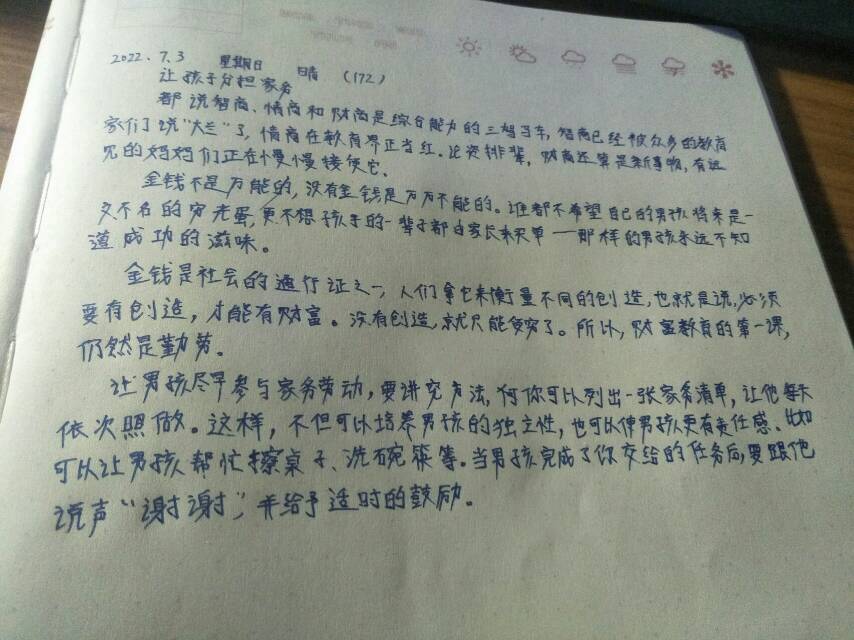 2022.7.3 星期日 晴 (172)
让孩子分担家务
都说智商、情商和财商是综合能力的三驾马车,智商已经被众多的教育
家们说“大兰”了,情商在教育界正当红。论资排辈,财商还算是新事物,有远
见的妈妈们正在慢慢接使它、
金钱不是万能的,没有金钱是万万不能的。谁都不希望自己的男孩将来是一
文不名的穷光蛋,更不想孩子的一辈子都由家长来买单——那样的男孩永远不知
道成功的滋味。
金钱是社会的通行证之一,人们拿它来衡量不同的创造,也就是说,必须
要有创造,才能有财富。没有创造,就只能受穷了。所以,财富教育的第一课,
仍然是勤劳。
让男孩尽早参与家务劳动,要讲究方法,何你可以列出一张家务清单,让他每天
依次照做。这样,不但可以培养男孩的独立性,也可以使男孩更有责任感、比如
可以让男孩帮忙擦桌子、洗碗筷等。当男孩完成了你交给的任务后,要跟他
说声“谢谢”,并给予适时的鼓励。